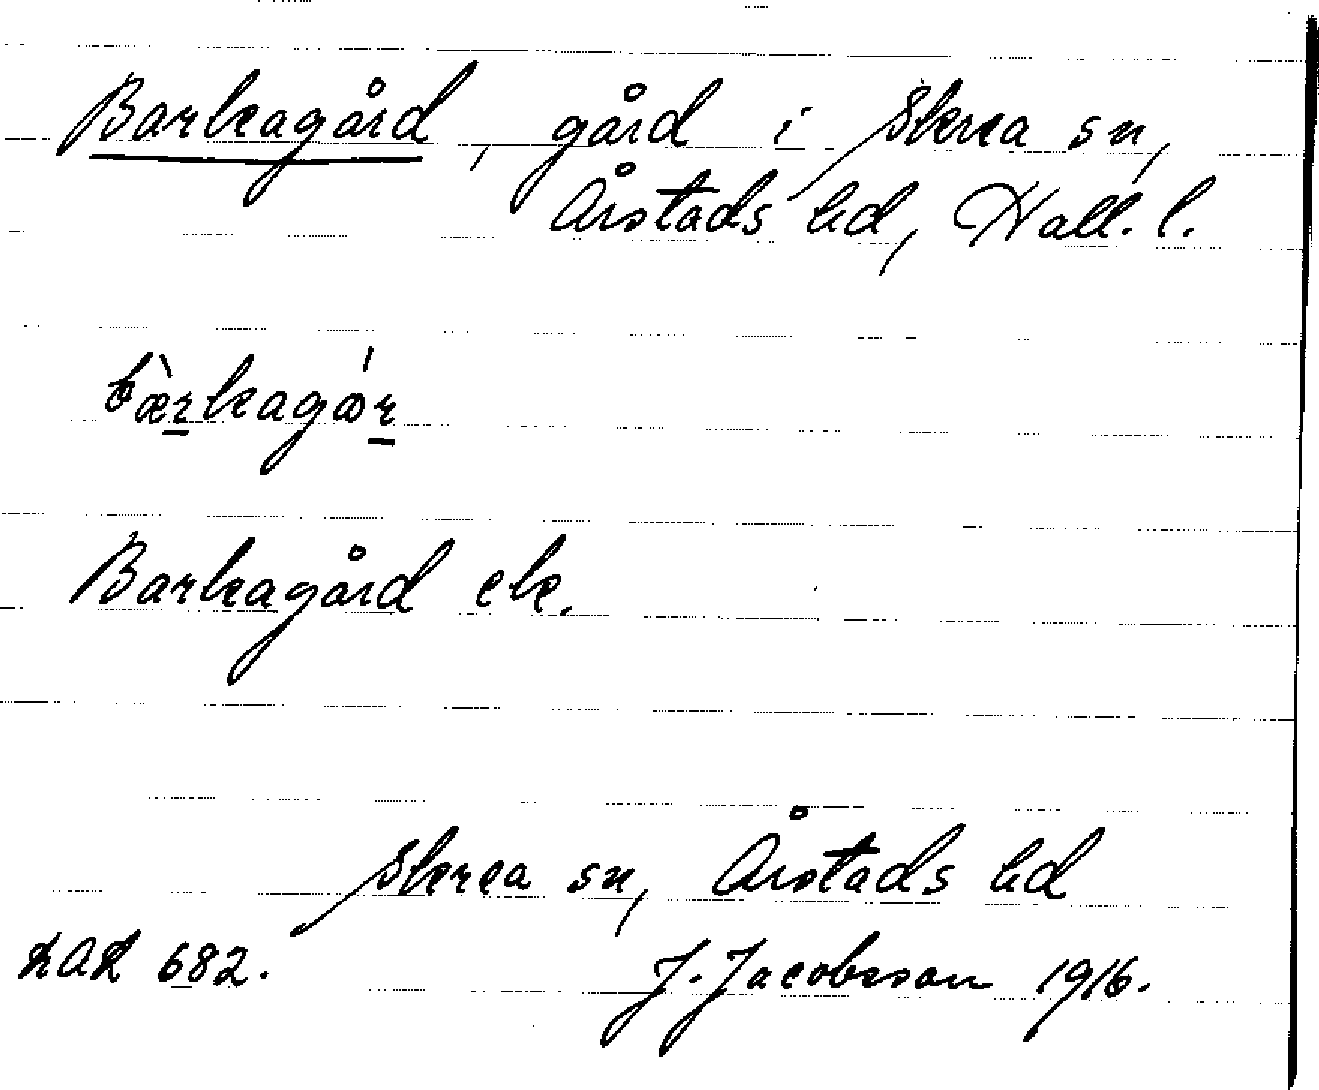 Barkagård, gård i Skrea sn,
Årstads hd, Hall. l.
bærkagår
Barkagård ek.
Skrea sn, Årstads hd
682. J. Jacobsson 1916.